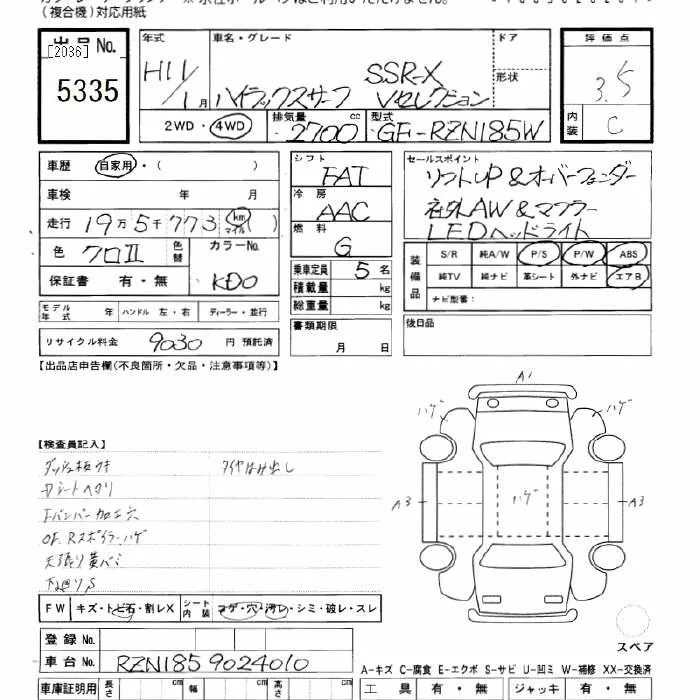 (複合機)対応用紙
出品 No.
[2036]
5335
年式 車名・グレード ドア
H11/1月 ハイラックスサーフ SSR-X Vセレクション 形状
2WD・4WD 排気量 2700 cc 型式 GF-RZN185W
評価点
3.5
内装 C
車歴 自家用・( )
車検 年 月
走行 19万5千773 km マイル( )
色 クロII 色替 カラーNo.
保証書 有・無 KD0
モデル年式 年 ハンドル 左・右 ディーラー・並行
リサイクル料金 9030 円 預託済
シフト FAT
冷房 AAC
燃料 G
乗車定員 5 名
積載量 kg
総重量 kg
書類期限
月 日
セールスポイント
リフトUP&オーバーフェンダー
社外AW&マフラー
LEDヘッドライト
装備品 S/R 純A/W P/S P/W ABS
純TV 純ナビ 革シート 外ナビ エアB
ナビ型番:
後日品
【出品店申告欄(不良箇所・欠品・注意事項等)】
【検査員記入】
タイヤはみ出し
天張り黄バミ
A1
ハゲ
ハゲ
A3
ハゲ
A3
スペア
FW キズ・トビ石・割レX シート内装 コゲ・穴・汚レ・シミ・破レ・スレ
登録 No.
車台 No. RZN185 9024010
A-キズ C-腐食 E-エクボ S-サビ U-凹ミ W-補修 XX-交換済
車庫証明用 長さ cm 幅 cm 高さ cm 工具 有・無 ジャッキ 有・無